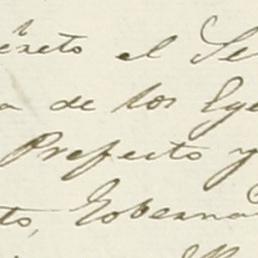 creto el Se
a de los Eje
Prefecto y
to, Goberna